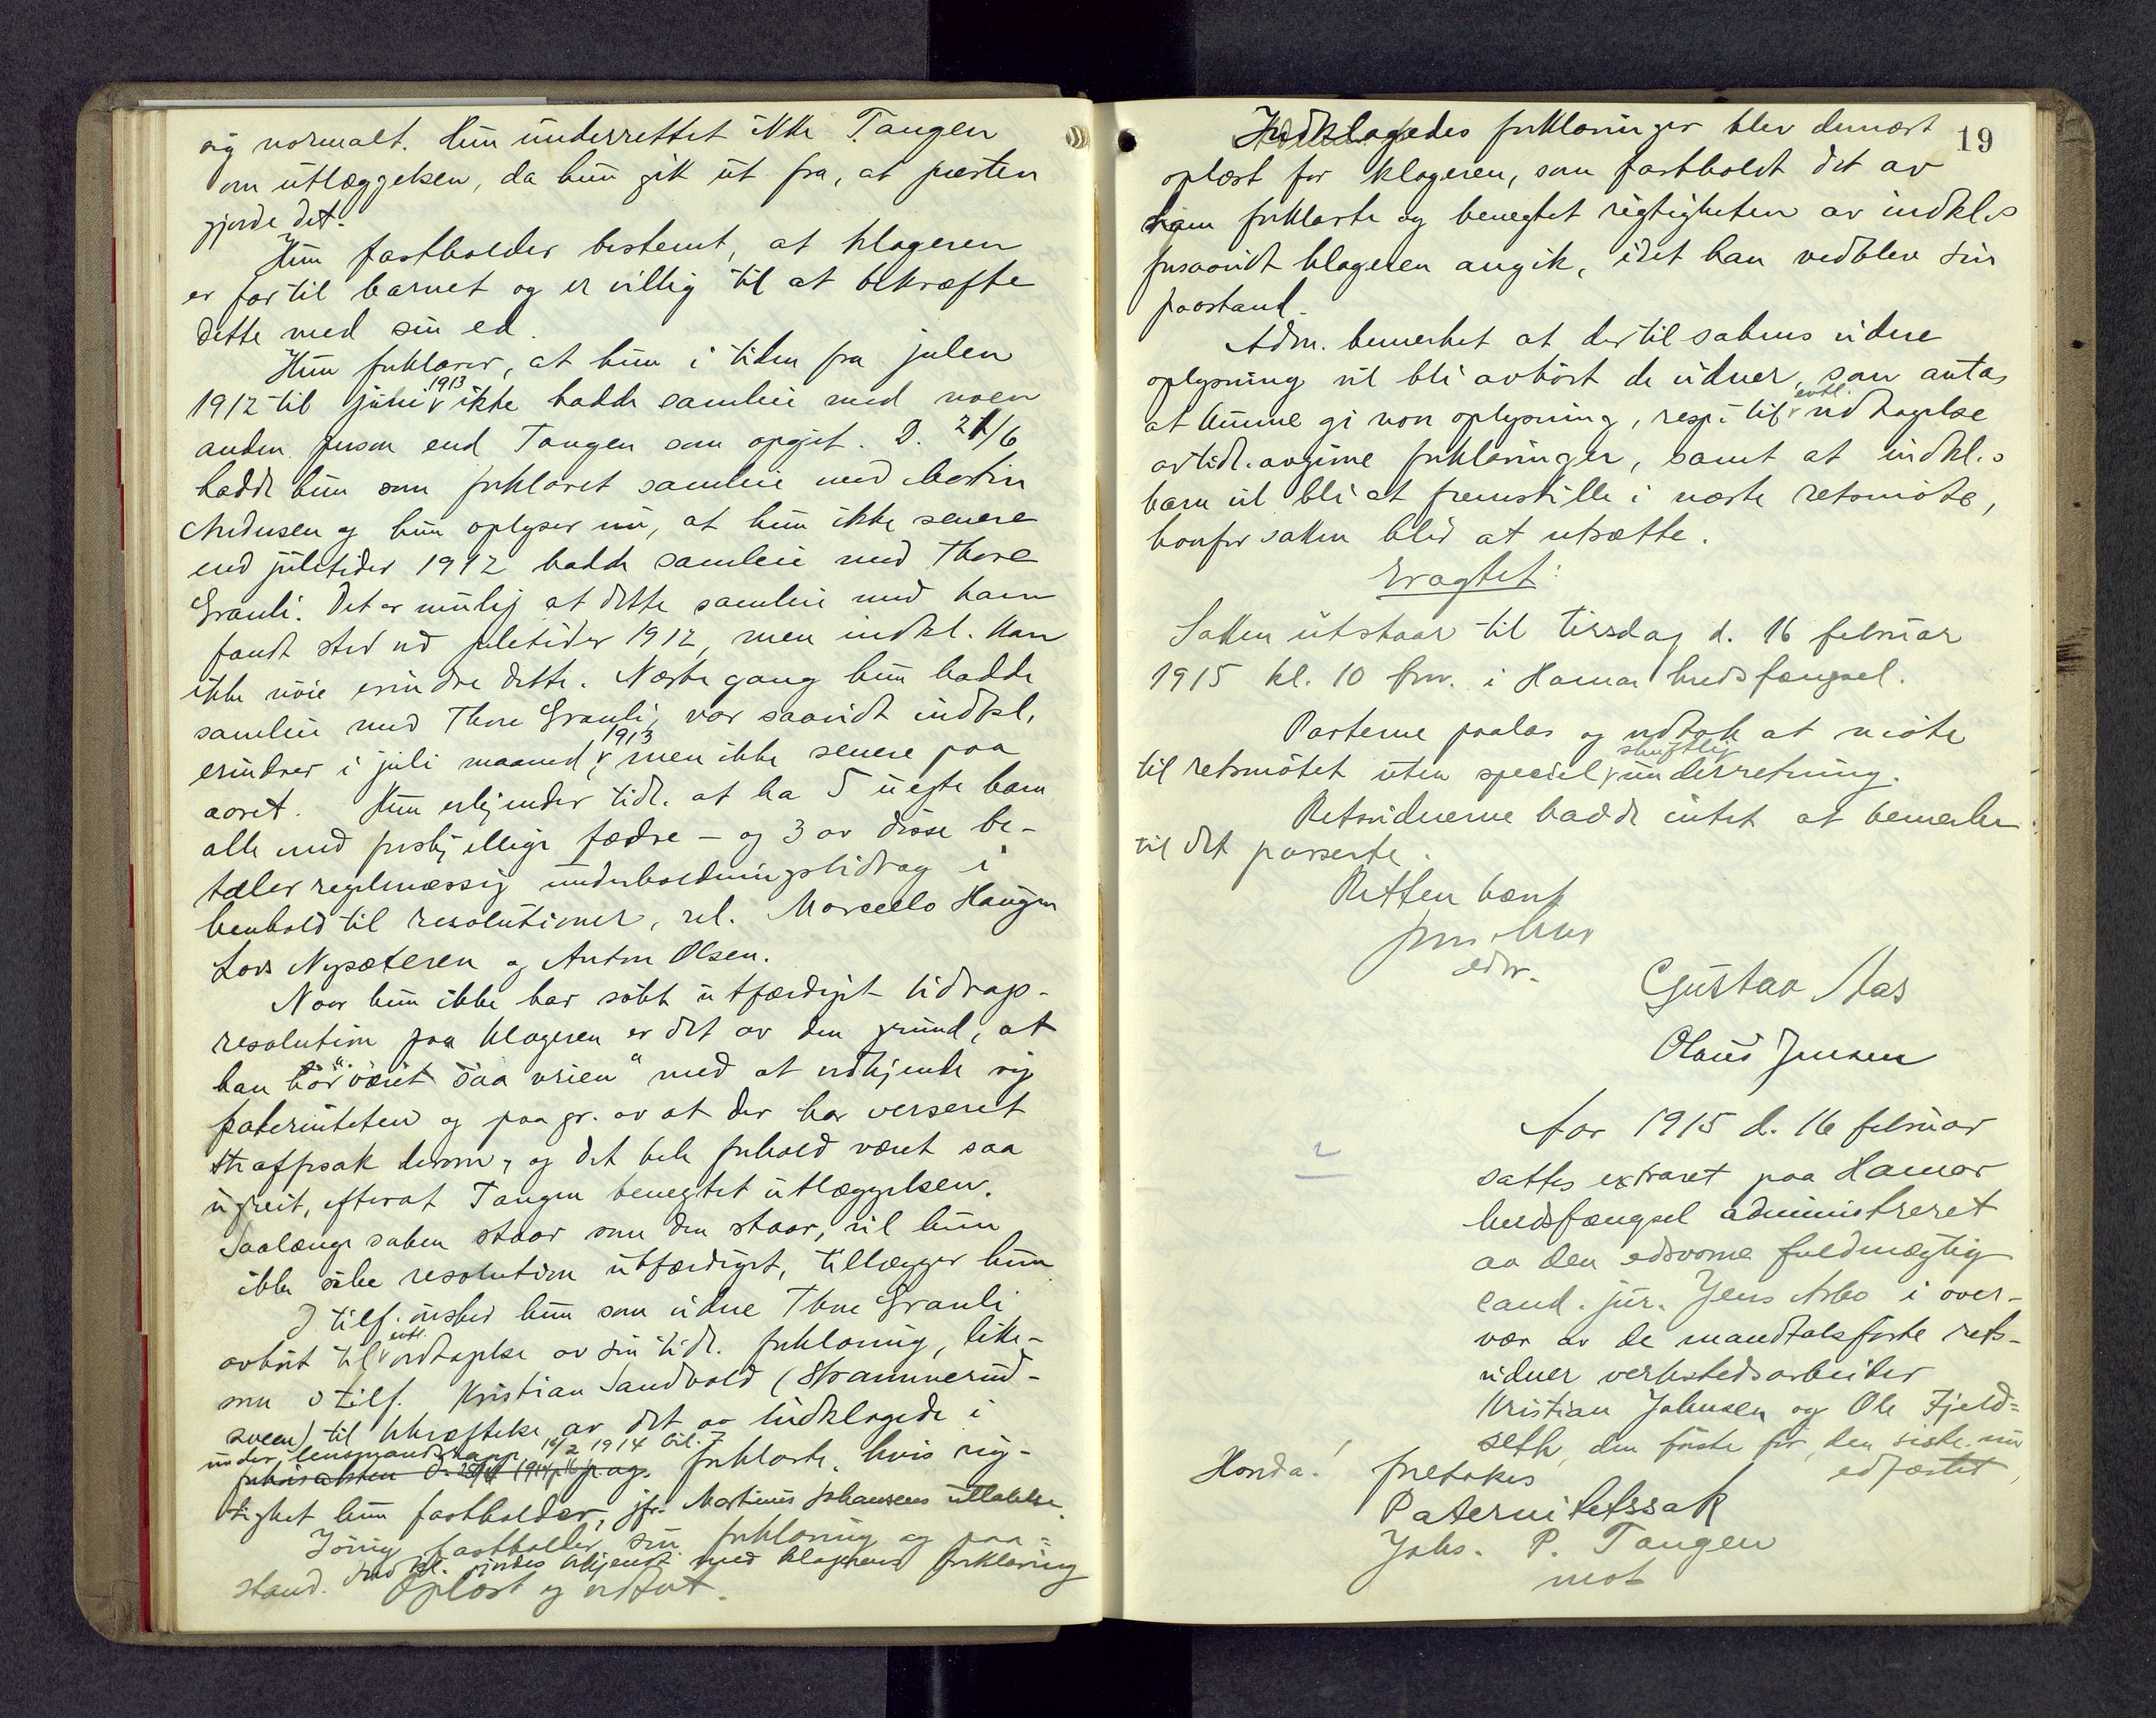 sig normalt. Hun underrettet ikke Tangen
om utlæggelsen, da hun gik ut fra, at presten
gjorde det.
Hun fastholder bestemt, at klageren
er far til barnet og er villig til at bekræfte
dette med sin ed.
Hun forklarer, at hun i tiden fra julen
1912 til juni 1913 ikke hadde samleie med noen
anden person end Tangen som opgit. D. 21/6
hadde hun som forklaret samleie med Martin
og hun oplyser nu, at hun ikke senere
end juletider 1912 hadde samleie med Thore
Granli. Det er mulig at dette samleie med ham
fandt sted ved juletider 1912, men indkl. kan
ikke nøie erindre dette. Næste gang hun hadde
samleie med Thore Granli, var saavidt indkl.
erindrer i juli maaned 1913, men ikke senere paa
aaret. Hun erkjender tidl. at ha 5 uegte barn
alle med forskjellige fædre - og 3 av disse be-
taler regelmæssig underholdningsbidrag i
henhold til resolutioner, nl. Marcello Haugen
Lars Nysæteren og Anton Olsen.
Naar hun ikke har søkt utfærdiget bidrags-
resolution paa klageren er det av den grund, at
han har "været saa vrien" med at vedkjende sig
paterniteten og paa gr. av at der har verseret
straffesak derom, og det hele forhold været saa
ugreit, efterat Tangen benegtet utlæggelsen.
Saalænge saken staar som den staar, vil hun
ikke søke resolution utfærdiget, tillægger hun
I tilf. ønsker hun som vidne Thore Granli
avhørt til evtl. vedtagelse av sin tidl. forklaring, like-
som i tilf. Kristian Sandvold (Strammerud-
sveen) til bekræftelse av det av indklagede i
under lensmandsrapp. 10/2 1914 bil. 7
forklarte, hvis rig-
tighet hun fastholder, jfr. Martinus Johansens uttalelse.
Iøvrig fastholder sin forklaring og paa-
stand. Indkl. gjordes bekjendt med klagerens forklaring
Oplæst og vedtat.
19
Indklagedes forklaringer blev dernæst
oplæst for klageren, som fastholdt det av
ham forklarte og benegtet rigtigheten av indkl.s
forsaavidt klageren angik, idet han vedblev sin
paastand.
Adm. bemerket at der til sakens videre
oplysning vil bli avhørt de vidner, som antas
at kunne gi noen oplysning, resp. til evtl. vedtagelse
av tidl. avgivne forklaringer, samt at indkl.s
barn vil bli at fremstille i næste retsmøte,
hvorfor saken blir at utsætte.
Eragtet:
Saken utstaar til tirsdag d. 16 februar
1915 kl. 10 fm. i Hamar kredsfængsel.
Parterne paalas og vedtok at møte
til retsmøtet uten speciel skriftlig underretning.
Retsvidnerne hadde intet at bemerke
til det passerte.
Retten hævet
Jens Arbo
edsv.
Gustav Aas
Olaus Jensen
Aar 1915 d. 16 februar
sattes extraret paa Hamar
kredsfængsel administreret
av den edsvorne fuldmægtig
cand. jur. Jens Arbo i over-
vær av de mandtalsførte rets-
vidner verkstedsarbeider
Kristian Johnsen og Ole Fjeld=
seth, den første før, den siste nu
edfæstet,
Hvorda!
foretokes
Paternitetssak
Johs. P. Tangen
mot